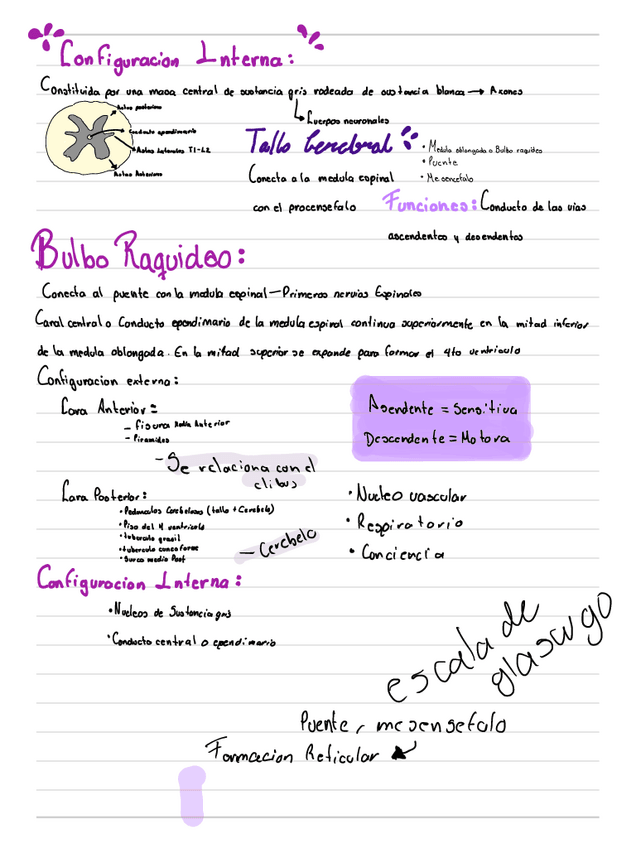 Configuracion Interna:
Constituida por una masa central de sustancia gris rodeada de sustancia blanca → Axones
Cuerpos neuronales
Astas posteriores
Conducto ependimario
Astas laterales T1-L2
Astas Anteriores
Tallo Cerebral
• Medula oblongada o Bulbo raquideo
• Puente
• Mesencefalo
Conecta a la medula espinal
con el procensefalo
Funciones: Conducto de las vias
ascendentes y desendentes
Bulbo Raquideo:
Conecta al puente con la medula espinal — Primeros nervios Espinales
Canal central o Conducto ependimario de la medula espinal continua superiormente en la mitad inferior
de la medula oblongada. En la mitad superior se expande para formar el 4to ventriculo
Configuracion externa:
Cara Anterior:
- fisura Anterior
- Piramides
- Se relaciona con el
clibus
Asendente = Sensitiva
Descendente = Motora
Cara Posterior:
• Pedunculos Cerebelosos (tallo + Cerebelo)
• Piso del 4 ventriculo
• tuberculo gracil
• tuberculo cuneoforme
• Surco medio Post
— Cerebelo
• Nucleo vascular
• Respiratorio
• Conciencia
Configuracion Interna:
• Nucleos de Sustancia gris
• Conducto central o ependimario
escala de
glasugo
Puente, mesensefalo
Formacion Reticular